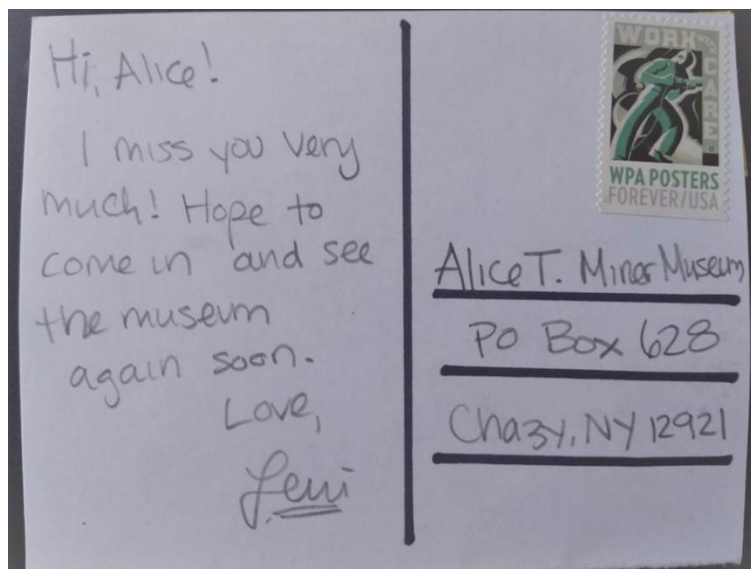 Hi, Alice!
I miss you very
much! Hope to
come in and see
the museum
again soon.
Love,
WORK WITH
CARE
WPA POSTERS
FOREVER/USA
Alice T. Miner Museum
PO Box 628
Chazy, NY 12921